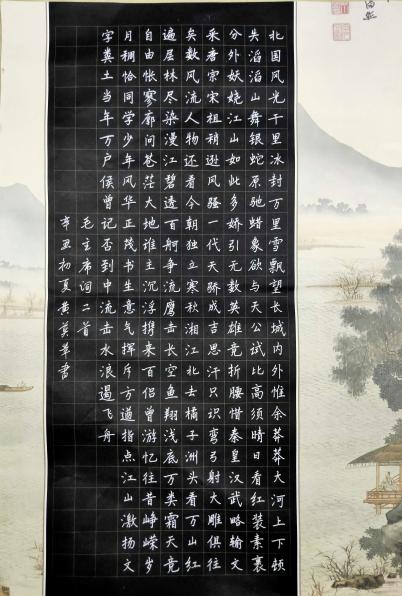 北国风光千里冰封万里雪飘望长城内外惟余莽莽大河上下顿
失滔滔山舞银蛇原驰蜡象欲与天公试比高须晴日看红装素裹
分外妖娆江山如此多娇引无数英雄竞折腰惜秦皇汉武略输文
采唐宗宋祖稍逊风骚一代天骄成吉思汗只识弯弓射大雕俱往
矣数风流人物还看今朝独立寒秋湘江北去橘子洲头看万山红
遍层林尽染漫江碧透百舸争流鹰击长空鱼翔浅底万类霜天竞
自由怅寥廓问苍茫大地谁主沉浮携来百侣曾游忆往昔峥嵘岁
月稠恰同学少年风华正茂书生意气挥斥方遒指点江山激扬文
字粪土当年万户侯曾记否到中流击水浪遏飞舟
毛主席词二首
辛丑初夏黄华书